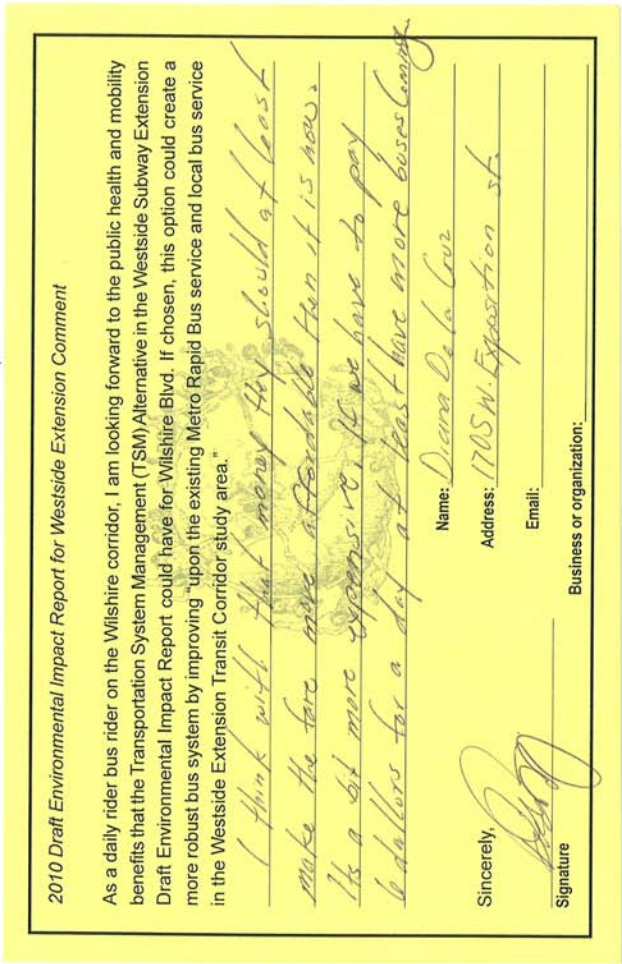 2010 Draft Environmental Impact Report for Westside Extension Comment
As a daily rider bus rider on the Wilshire corridor, I am looking forward to the public health and mobility
benefits that the Transportation System Management (TSM) Alternative in the Westside Subway Extension
Draft Environmental Impact Report could have for Wilshire Blvd. If chosen, this option could create a
more robust bus system by improving "upon the existing Metro Rapid Bus service and local bus service
in the Westside Extension Transit Corridor study area."
I think with that money they should at least
make the fare more affordable then it is now.
Its a bit more expensive. If we have to pay
6 dallors for a day at least have more buses coming
Name: Diana De la Cruz
Address: 1705 W. Exposition st.
Email:
Sincerely,
Signature
Business or organization: